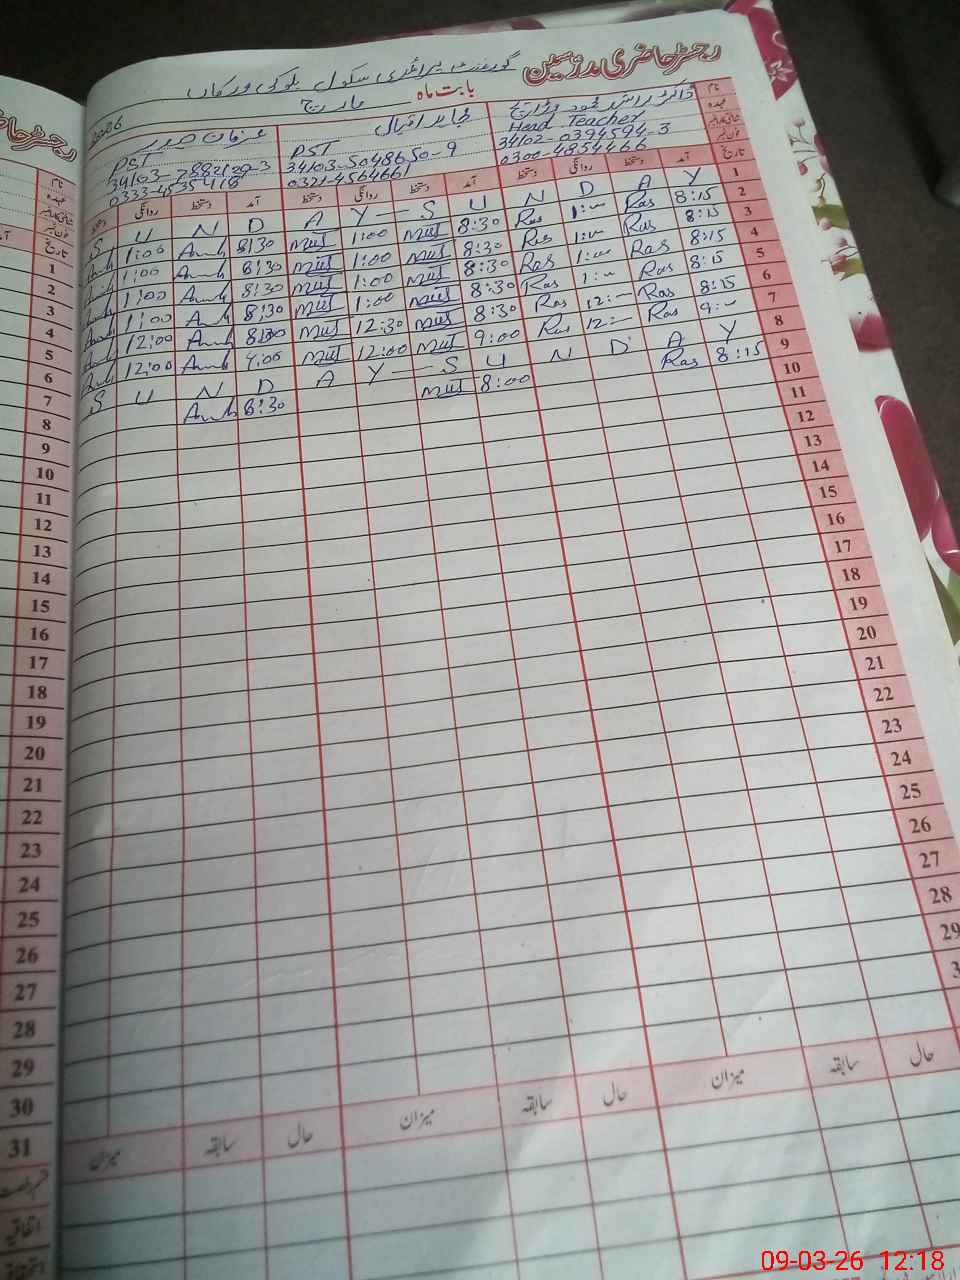 رجسٹر حاضری مدرسین گورنمنٹ پرائمری سکول
بابت ماہ مارچ 2026
نام
عہدہ
شناختی کارڈ نمبر
فون نمبر
Head Teacher
34102-0394594-3
0300-4854466
مجاہد اقبال
PST
34103-5048650-9
0321-4564661
PST
34103-7882129-3
0333-4535418
تاریخ آمد دستخط روانگی دستخط آمد دستخط روانگی دستخط آمد دستخط روانگی دستخط
1 S U N D A Y — S U N D A Y
2 8:15 Ras 1:00 Ras 8:30 1:00 8:30 1:00
3 8:15 Ras 1:00 Ras 8:30 1:00 8:30 1:00
4 8:15 Ras 1:00 Ras 8:30 1:00 8:30 1:00
5 8:15 Ras 1:00 Ras 8:30 1:00 8:30 1:00
6 8:15 Ras 12:— Ras 8:30 12:30 8:30 12:00
7 9:— Ras 12:— Ras 9:00 12:00 9:00 12:00
8 S U N D A Y — S U N D A Y
9 8:15 Ras 8:00 8:30
10
11
12
13
14
15
16
17
18
19
20
21
22
23
24
25
26
27
28
29
3
حال سابقہ میزان حال سابقہ میزان حال سابقہ میزان
نام
عہدہ
شناختی کارڈ نمبر
فون نمبر
تاریخ
1
2
3
4
5
6
7
8
9
10
11
12
13
14
15
16
17
18
19
20
21
22
23
24
25
26
27
28
29
30
31
قسم رخصت
اتفاقیہ
09-03-26 12:18